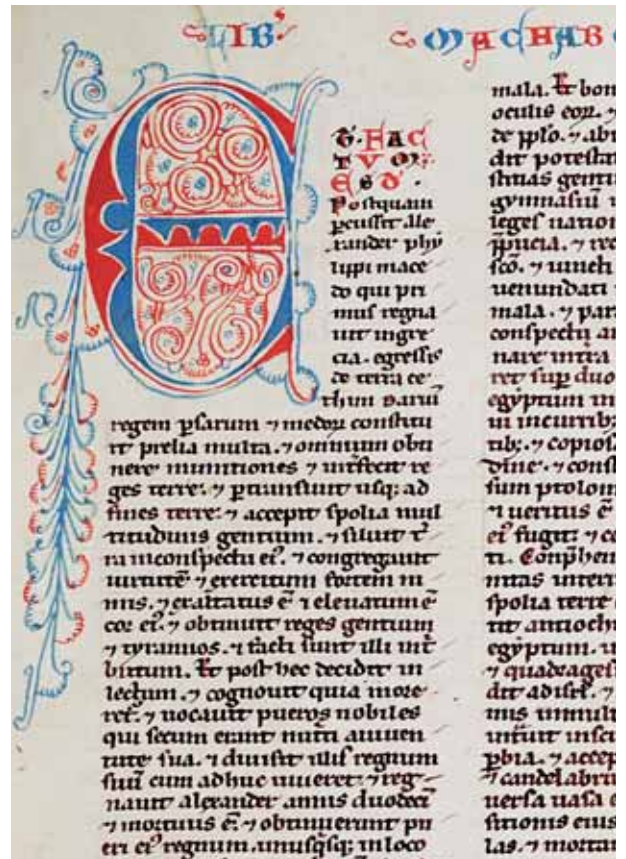 LIB'
MACHAB
E
T. FAC
TVM
EST.
Postquam
percussit ale
xander phy
lippi mace
do qui pri
mus regna
uit in gre
cia. egressus
de terra ce
thim Dariū
regem psarum ⁊ medoꝝ constitu
it prelia multa. ⁊ omnium obti
nere munitiones ⁊ intfecit re
ges terre. ⁊ ptransiuit usqꝫ ad
fines terre. ⁊ accepit spolia mul
titudinis gentium. ⁊ siluit t̄
ra in conspectu ei'. ⁊ congregauit
uirtutē ⁊ exercitum fortem ni
mis. ⁊ exaltatus ē ⁊ eleuatum ē
cor ei'. ⁊ obtinuit reges gentium
⁊ tyrannos. ⁊ facti sunt illi in t̄
butum. Et post hec decidit in
lectum. ⁊ cognouit quia more
ret'. ⁊ uocauit pueros nobiles
qui secum erant nutti a iuuen
tute sua. ⁊ diuisit illis regnum
suū cum adhuc uiueret. ⁊ reg
nauit alexander annis duodeci
⁊ mortuus ē. ⁊ obtinuerunt pu
eri ei' regnum. unusqsqꝫ in loco
mala. Et bon
oculis eoꝝ. ⁊
de pplo. ⁊ abi
dit potesta
stitias genti
gymnasiū
leges nation
ppucia. ⁊ rec
sco. ⁊ iuncti
uenundati
mala. ⁊ para
conspectu an
nare in tra
ret sup duo
egyptum in
ui in curribꝫ
tibꝫ. ⁊ copiosa
dine. ⁊ const
sum ptolom
⁊ ueritus ē
ei' fugit. ⁊ ce
ti. Comphen
nitas in terr
spolia terre
tit antioch
egyptum. in
⁊ quadrages
dit ad isrl'. ⁊
mis in mult
intuit in sci
pbia. ⁊ accep
⁊ candelabru
uersa uasa e
sitionis eius
las. ⁊ mortar